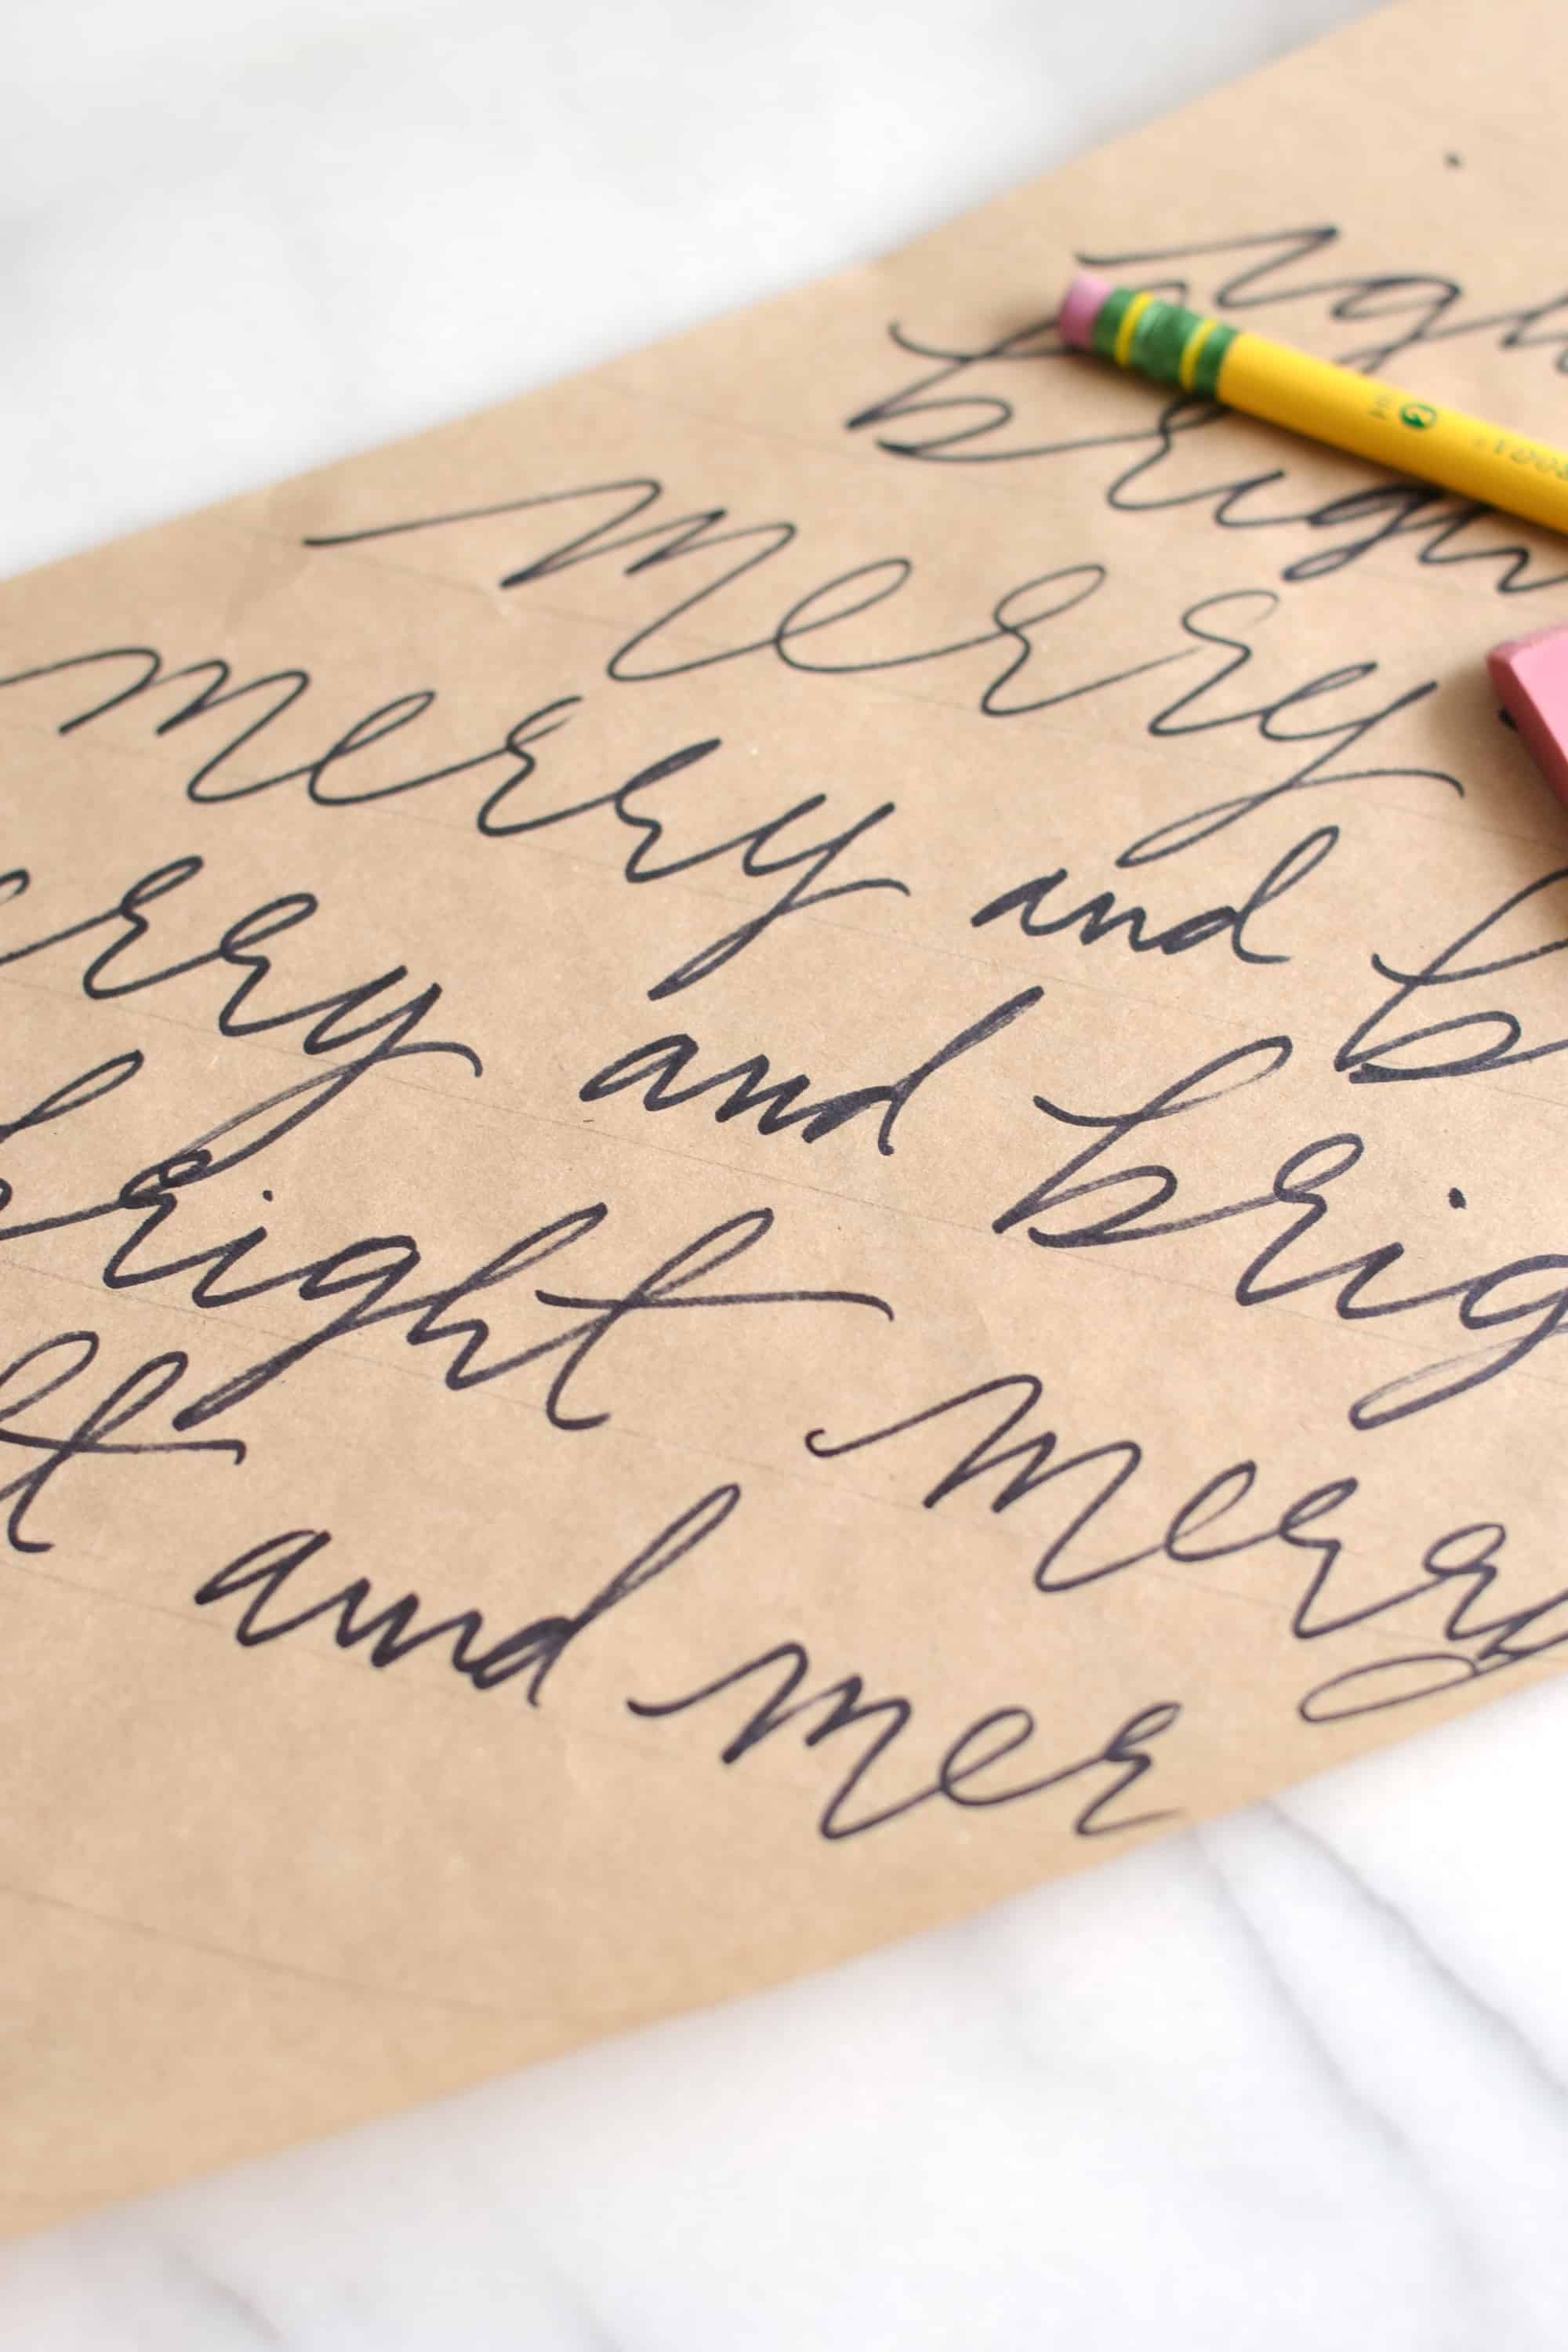 brigh
merry
merry and b
erry and brig
bright merry
ht and mer